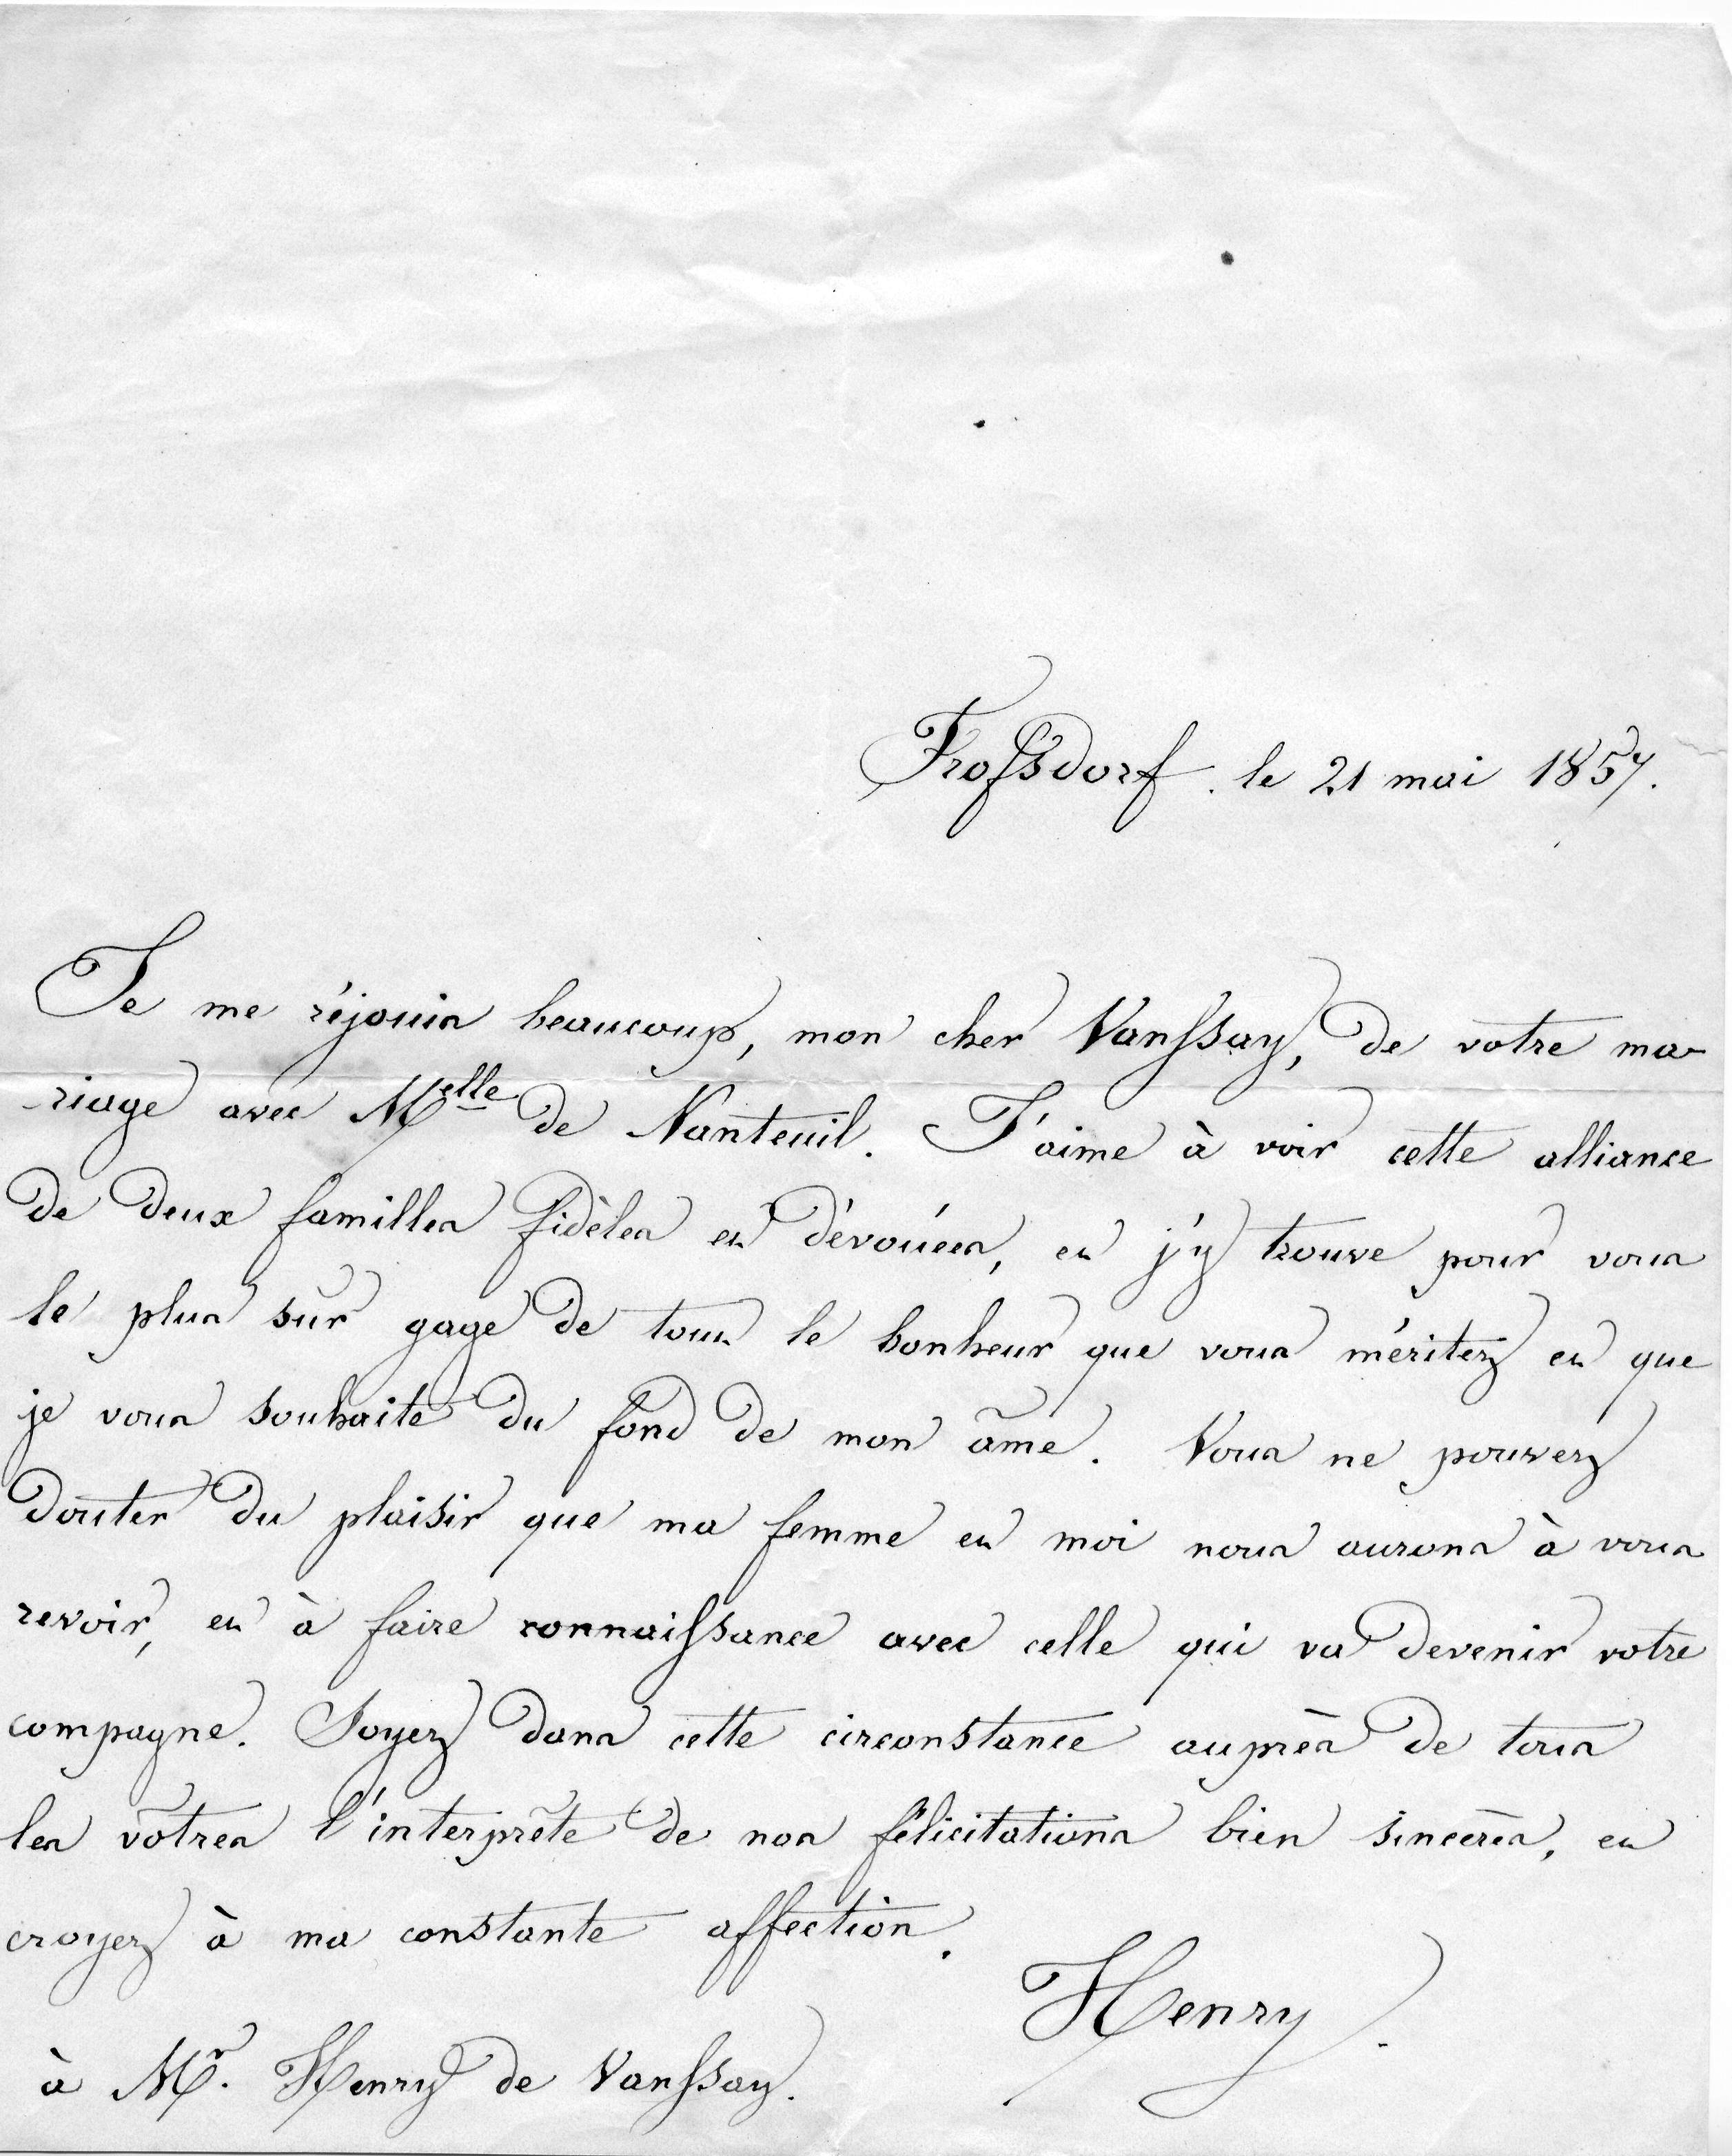 Frossdorf. le 21 mai 1857.
Je me réjouis beaucoup, mon cher Vanssay, de votre ma-
riage avec Melle de Nanteuil. J'aime à voir cette alliance
de deux familles fidèles et dévouées, et j'y trouve pour vous
le plus sûr gage de tout le bonheur que vous méritez et que
je vous souhaite du fond de mon âme. Vous ne pouvez
douter du plaisir que ma femme et moi nous aurons à vous
revoir, et à faire connaissance avec celle qui va devenir votre
compagne. Soyez dans cette circonstance auprès de tous
les vôtres l'interprête de nos félicitations bien sincères, et
croyez à ma constante affection.
Henry.
à Mr. Henry de Vanssay.